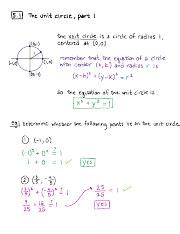 5.1 The unit circle, part 1
the unit circle is a circle of radius 1, centered at (0,0)
remember that the equation of a circle with center (h,k) and radius r is
(x-h)² + (y-k)² = r²
So the equation of the unit circle is
x² + y² = 1
eg. Determine whether the following points lie on the unit circle.
1) (-1,0)
(-1)² + 0² ≟ 1
1 + 0 = 1 ✓ yes
2) (3/5, -4/5)
(3/5)² + (-4/5)² ≟ 1
9/25 + 16/25 ≟ 1
25/25 = 1 ✓
yes